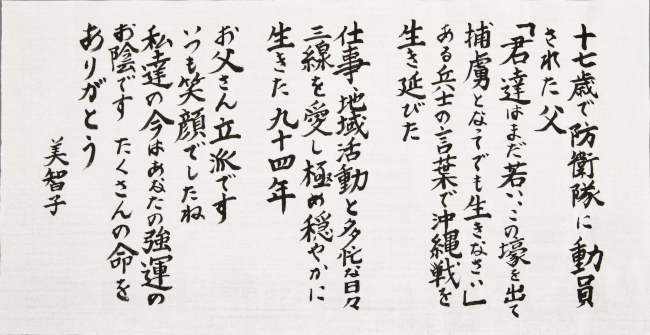 十七歳で防衛隊に動員
された父
「君達はまだ若い、この壕を出て
捕虜となってでも生きなさい」
ある兵士の言葉で沖縄戦を
生き延びた
仕事・地域活動と多忙な日々
三線を愛し極め穏やかに
生きた九十四年
お父さん立派です
いつも笑顔でしたね
私達の今はあなたの強運の
お陰です たくさんの命を
ありがとう
美智子